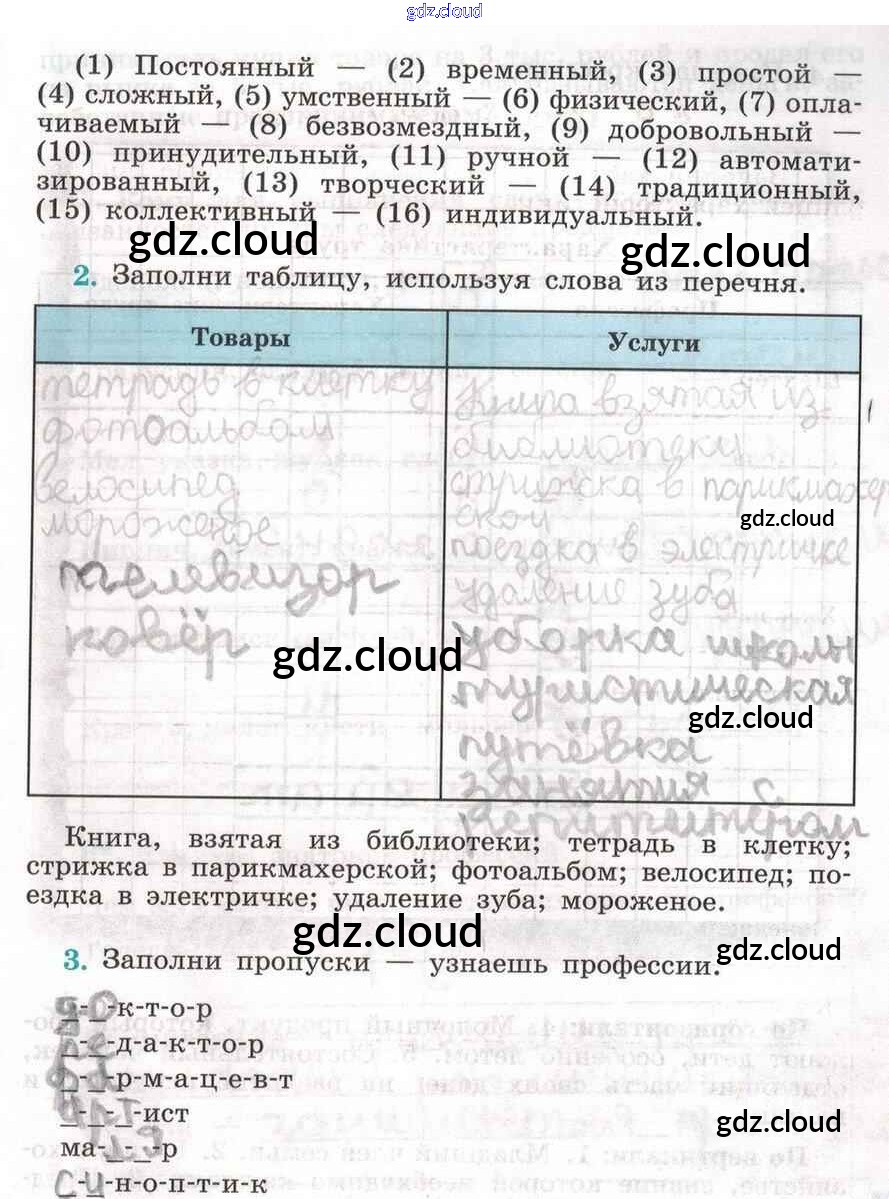 gdz.cloud
(1) Постоянный — (2) временный, (3) простой —
(4) сложный, (5) умственный — (6) физический, (7) опла-
чиваемый — (8) безвозмездный, (9) добровольный —
(10) принудительный, (11) ручной — (12) автомати-
зированный, (13) творческий — (14) традиционный,
(15) коллективный — (16) индивидуальный.
gdz.cloud
gdz.cloud
2. Заполни таблицу, используя слова из перечня.
Товары
Услуги
тетрадь в клетку
фотоальбом
велосипед
мороженое
телевизор
ковёр
Книга взятая из
библиотеки
стрижка в парикмахер
ской
поездка в электричке
удаление зуба
уборка школы
туристическая
путёвка
занятия с
репетитером
gdz.cloud
gdz.cloud
gdz.cloud
Книга, взятая из библиотеки; тетрадь в клетку;
стрижка в парикмахерской; фотоальбом; велосипед; по-
ездка в электричке; удаление зуба; мороженое.
gdz.cloud
gdz.cloud
3. Заполни пропуски — узнаешь профессии.
д-о-к-т-о-р
р-е-д-а-к-т-о-р
ф-а-р-м-а-ц-е-в-т
-ист
ма-ля-р
с-и-н-о-п-т-и-к
gdz.cloud
gdz.cloud